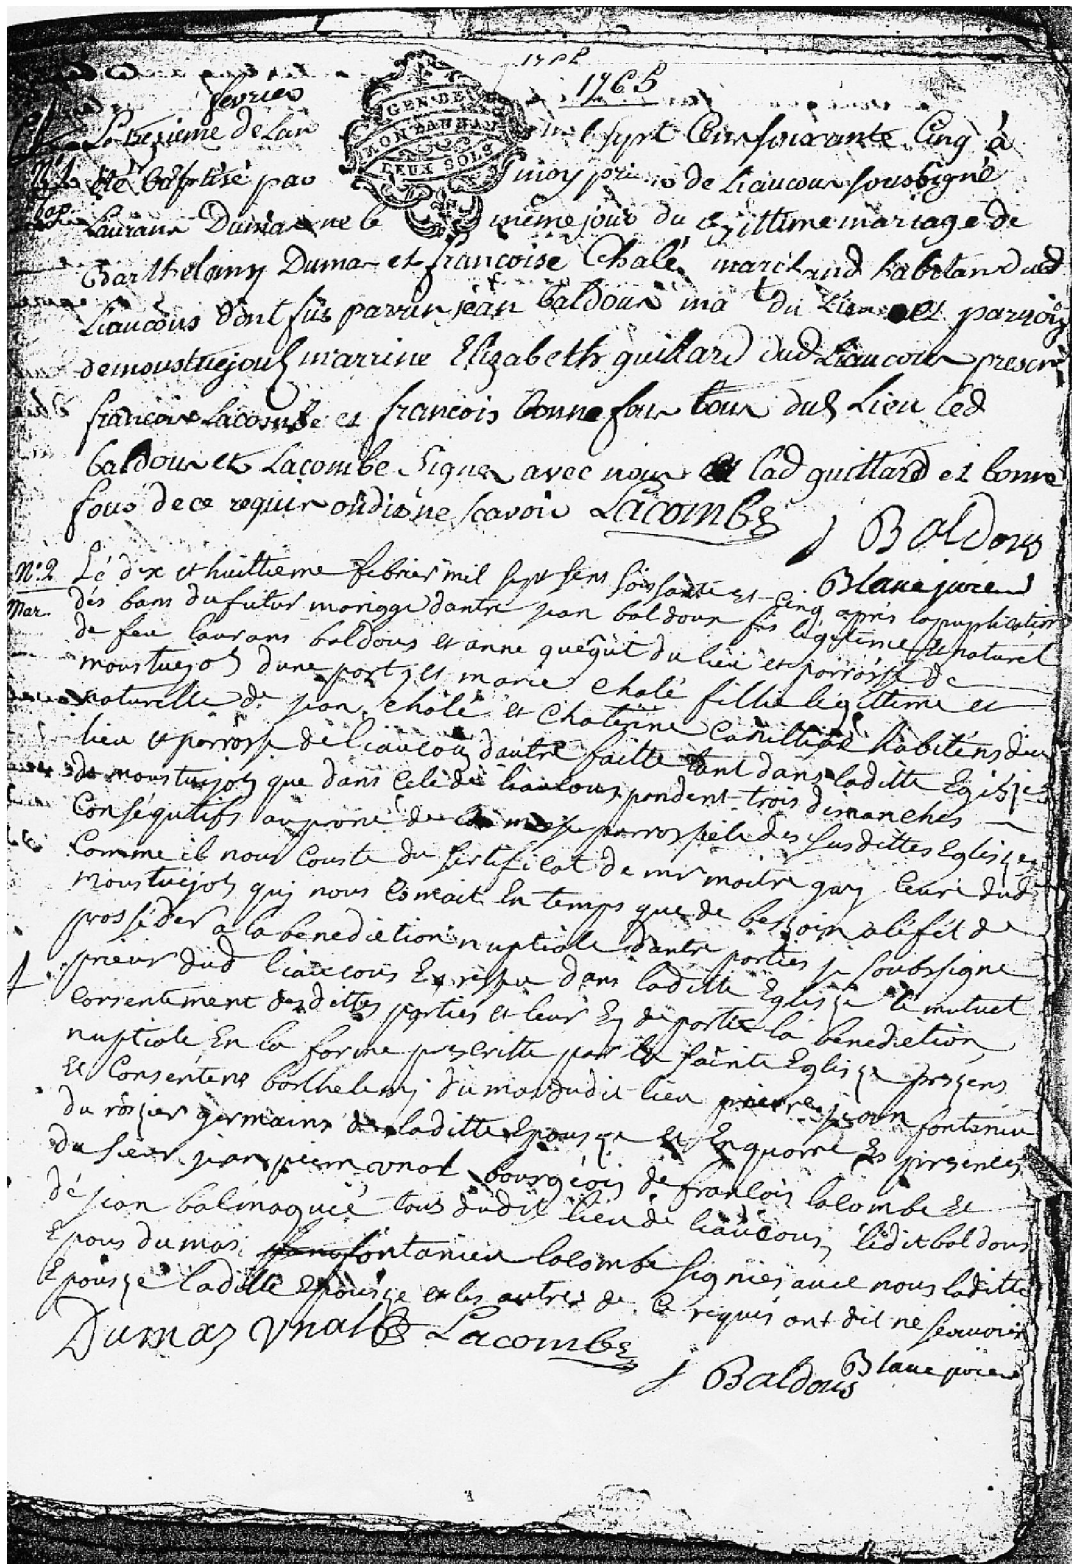 1765
fevrier
GEN. DE
MONTAUBAN
DEUX SOLS
Le treisieme de Lan mil sept Cens soixante Cinq à
N° 1 été baptisé par moy prieur de Liaucous soussigné
Bap. Laurans Dumas ne le même jour du legittime mariage de
Barthelamy Dumas et francoise Chalé marchand habitans dud
Liaucous dont füs parrin jean baldous du Lieu et parroisse
demoustuejouls marrine Elizabeth guillard dud Liaucous presens
francois Lacombe et francois bonnefous tous dud Lieu Led
baldous et Lacombe signes avec nous et lad guillard et bonne
fous de ce requis on dit ne scavoir Lacombe
J Baldous
Blanc prieur
N° 2 Le dix et huittieme febrier mil sept sens soissante et cinq après la puplication
Mar. des bans du futur mariage dantre jean baldous fis légitime et naturel
de feu laurans baldous et anne quegut du lieu et parroisse de
moustuejols dune part, et marie chalé fillie légittime et
naturelle de jean chalé et Chaterine habitens du
lieu et parrosse de liaucous dautre faitte tant dans laditte Eglisse
de moustuejols que dans Cele de liaucous pendent trois dimanches
Conséqutifs au prone de messe parrossiele des susdittes Eglisses
Comme il nous Conste du sertificat de mr maitre gay Curé dud
moustuejols quy nous Esmait En temps que de besoin a léfet de
prosséder a la benediction nuptiale dantre parties je soubssigne
prieur dud liaucous Ey dans laditte Eglisse le mutuel
consentement des dittes parties et leur Ey départi la benediction
nuptiale En la forme prescritte par la sainte Eglisse pressens
Et Consentens barthelemi dumas dudit lieu pierre jean fontanieu
du rosier germains de laditte Epousse Et Enquorre Es presences
du sieur jean pierre vnal bourgéois de francois lacombe et
de jean balmaquié tous dudit lieu de liaucous, ledit baldous
Epous dumas fontanieu lacombe signies avec nous laditte
Epousse laditte epousse et les autres de ce requis ont dit ne scavoir
Dumas vnal Lacombe
J Baldous Blanc prieur
1